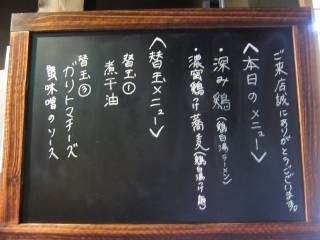 ご来店誠にありがとうございます。
〈本日のメニュー〉
・深み鶏(鶏白湯ラーメン)
・濃密鶏つけ蕎麦(鶏白湯つけ麺)
〈替玉メニュー〉
替玉①
煮干油
替玉③
ガリトマチーズ
蟹味噌のソース